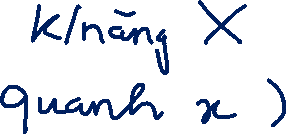 k/năng X
quanh x )